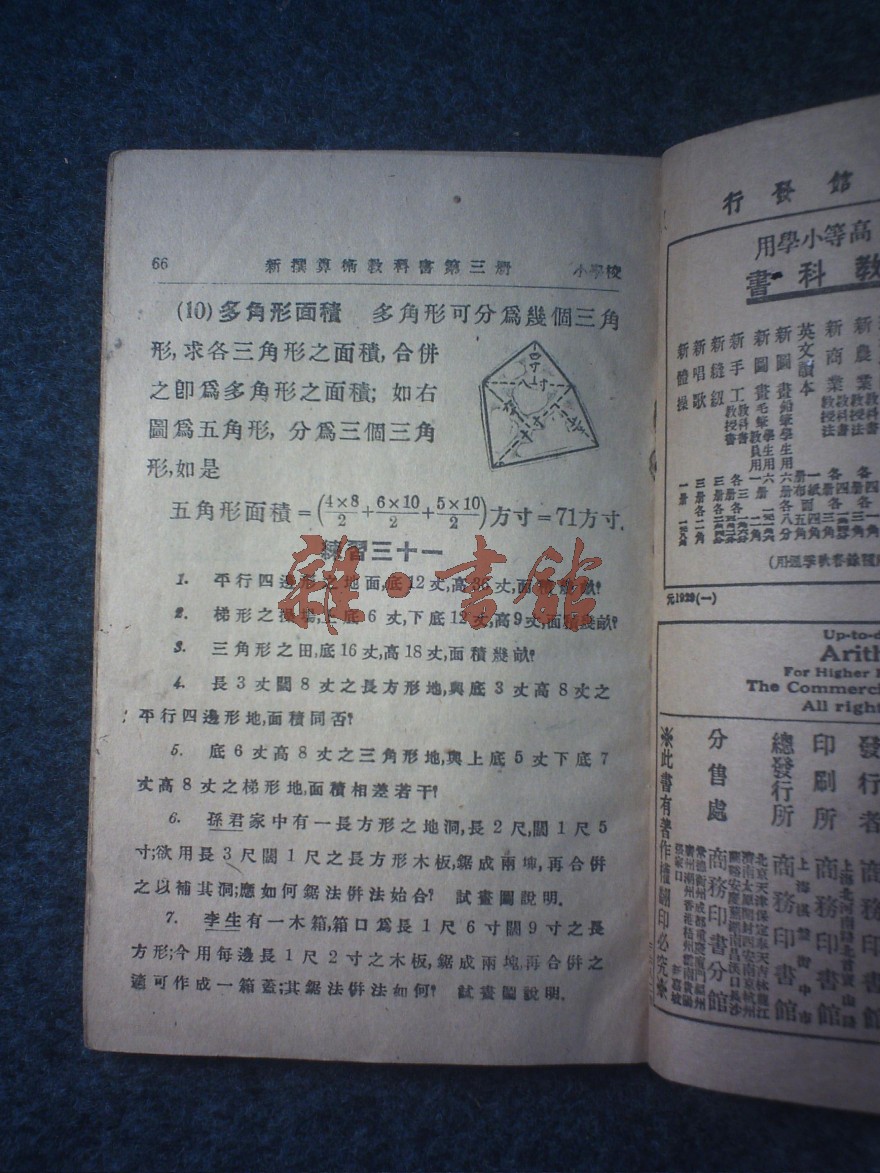 66 新撰算術教科書第三册 小學校
(10) 多角形面積 多角形可分爲幾個三角
形,求各三角形之面積,合併
之卽爲多角形之面積; 如右
圖爲五角形, 分爲三個三角
形,如是
五角形面積=(4×8/2+6×10/2+5×10/2)方寸=71方寸.
練習三十一
1. 平行四邊形之地面,底12丈,高36丈,面積幾畝?
2. 梯形之操場,上底6丈,下底12丈,高9丈,面積幾畝?
3. 三角形之田,底16丈,高18丈,面積幾畝?
4. 長3丈闊8丈之長方形地,與底3丈高8丈之
平行四邊形地,面積同否?
5. 底6丈高8丈之三角形地,與上底5丈下底7
丈高8丈之梯形地,面積相差若干?
6. 孫君家中有一長方形之地洞,長2尺,闊1尺5
寸;欲用長3尺闊1尺之長方形木板,鋸成兩塊,再合併
之以補其洞;應如何鋸法併法始合? 試畫圖說明.
7. 李生有一木箱,箱口爲長1尺6寸闊9寸之長
方形;今用每邊長1尺2寸之木板,鋸成兩塊,再合併之
適可作成一箱蓋;其鋸法併法如何? 試畫圖說明.
雜·書館
行發館
用學小等高
書科教
新農業
新商業
英文讀本
新圖畫
新圖畫
新手工
新縫紉
新唱歌
新體操
元1929(一)
Up-to-d
Arith
For Higher
The Commerci
All righ
發行者
印刷所 商務印書館
總發行所 商務印書館
分售處 商務印書分館
※此書有著作權翻印必究※